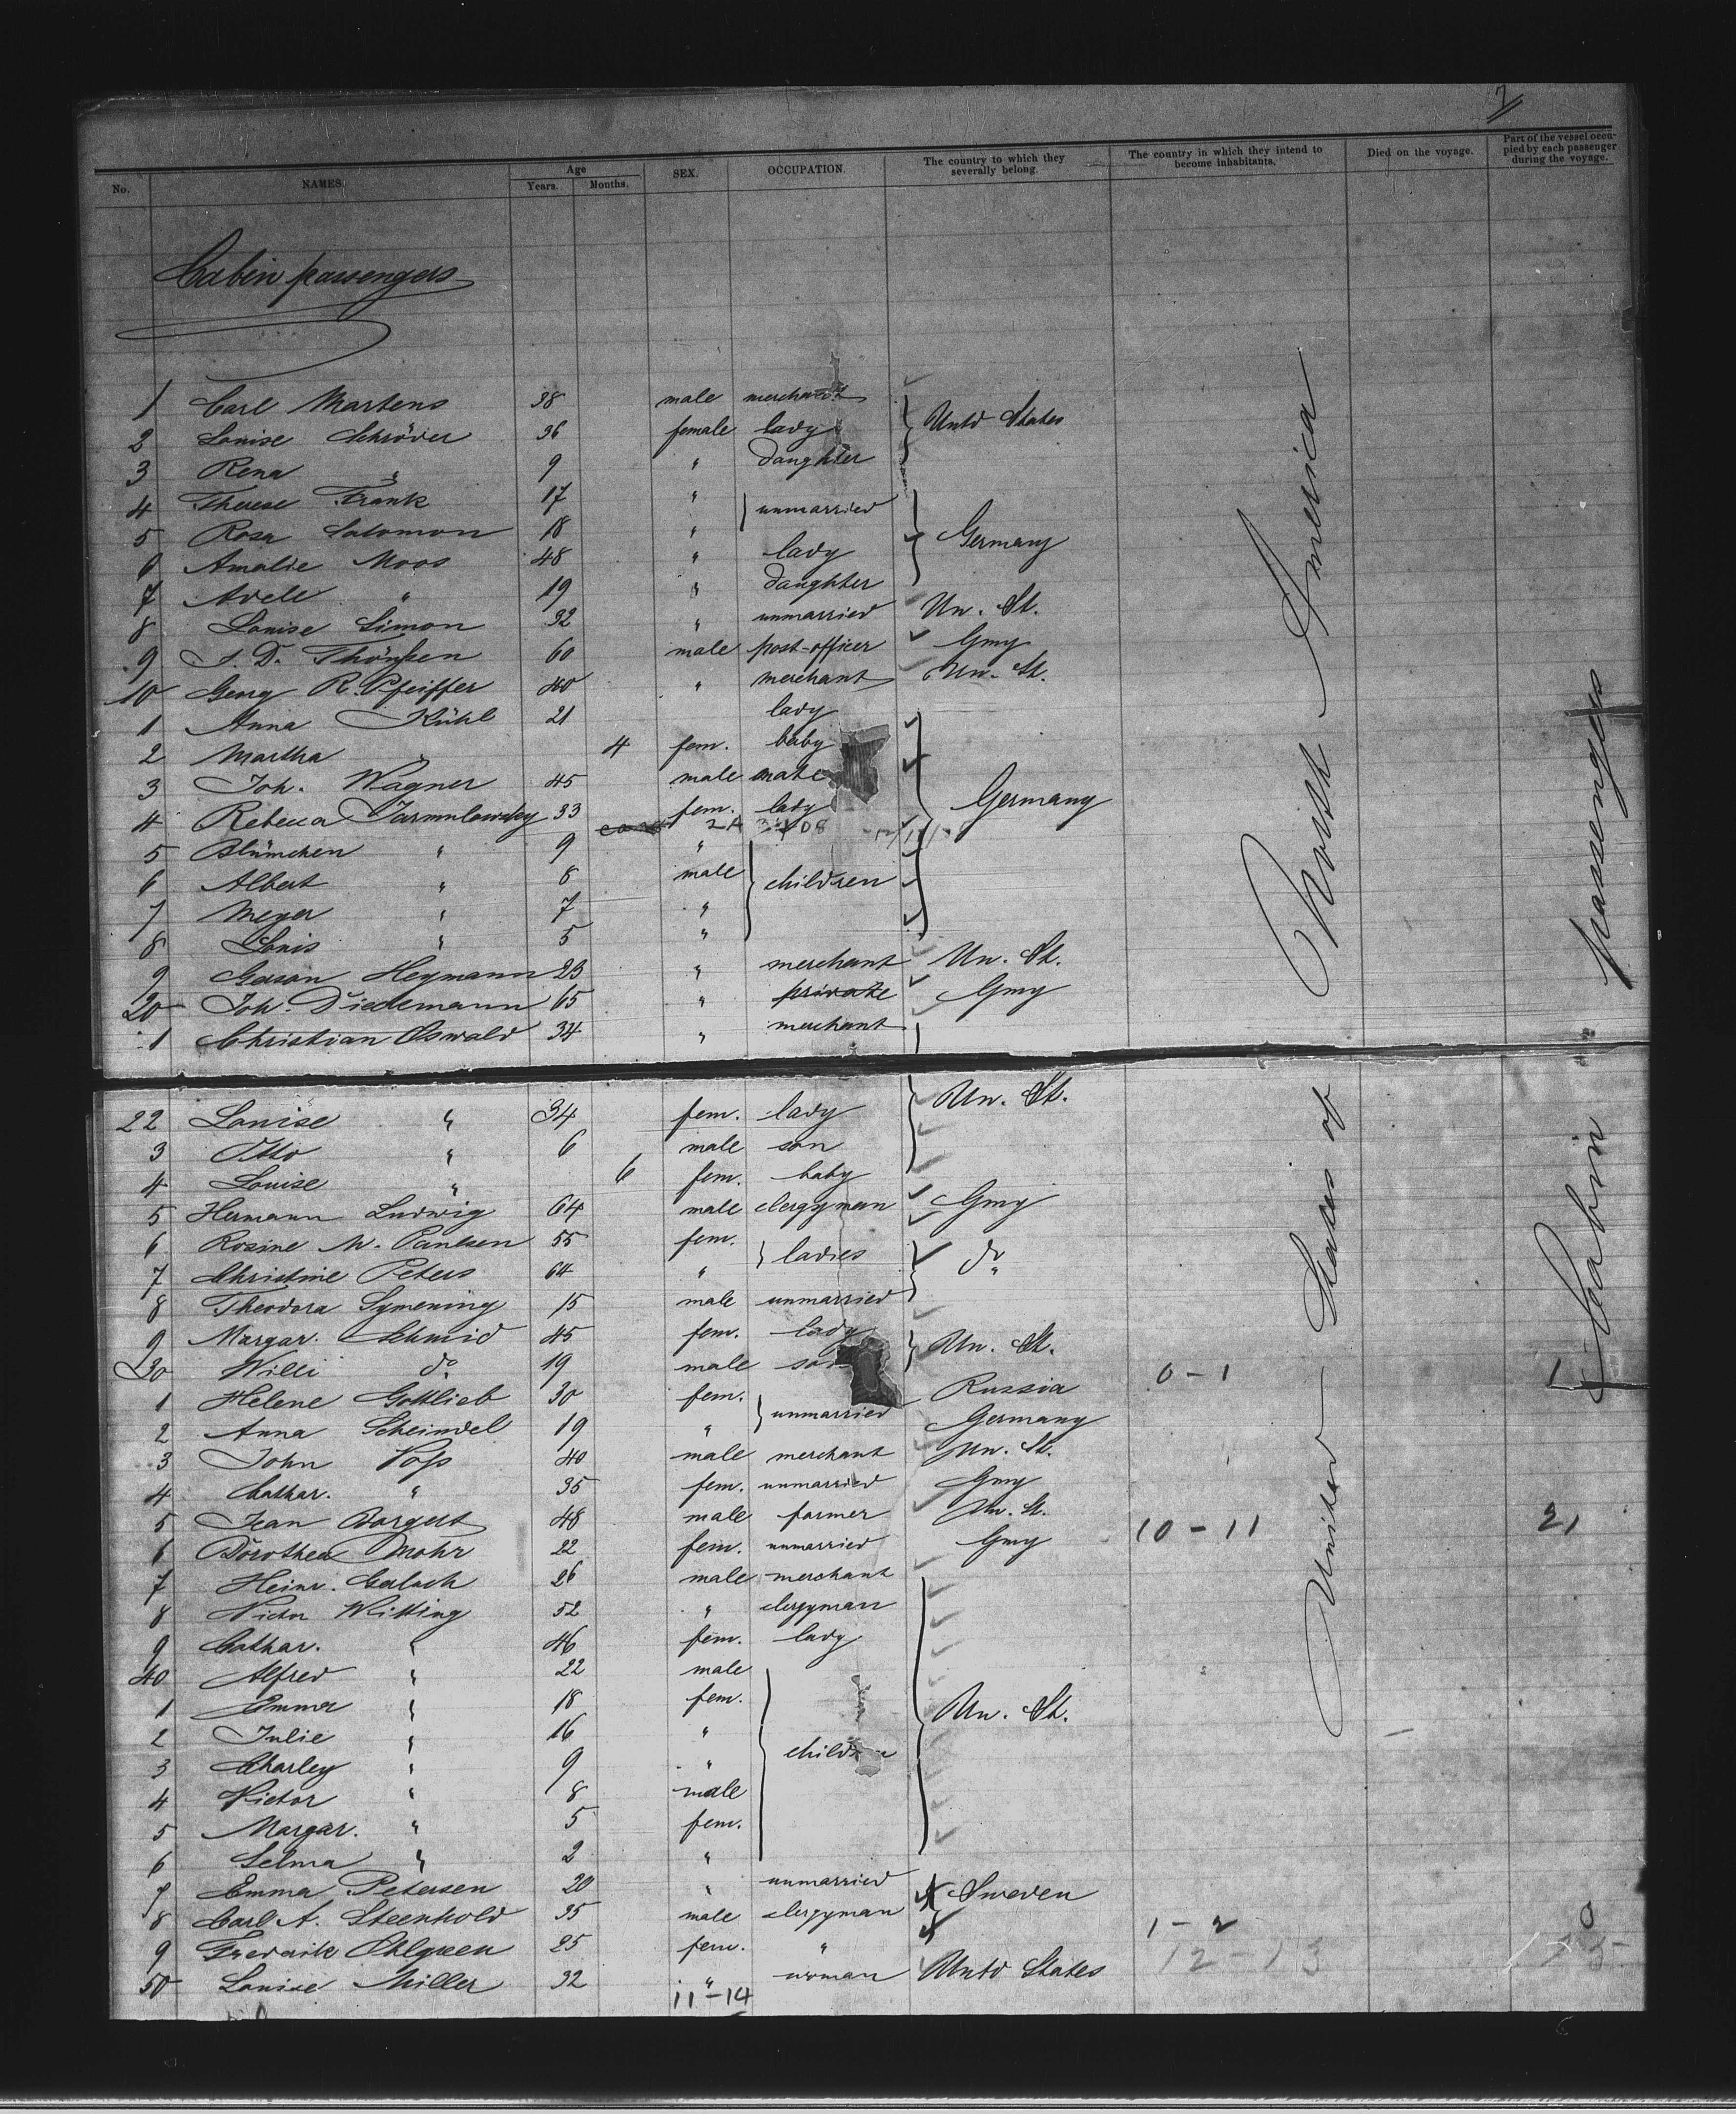 7
No. NAMES. Age Years. Months. SEX. OCCUPATION. The country to which they severally belong. The country in which they intend to become inhabitants. Died on the voyage. Part of the vessel occupied by each passenger during the voyage.
Cabin passengers
1 Carl Martens 38 male merchant
2 Louise Schröder 36 female lady Untd States
3 Rena " 9 " daughter
4 Therese Frank 17 " unmarried
5 Rosa Salomon 18 " Germany
6 Amalie Moos 48 " lady
7 Adele " 19 " daughter
8 Louise Simon 32 " unmarried Un. St.
9 J. D. Thönssen 60 male post-officer Gmy
10 Georg R. Pfeiffer 40 " merchant Un. St.
1 Anna Kühl 21 lady
2 Martha " 4 fem. baby
3 Joh. Wagner 45 male mate
4 Rebecca 33 fem. lady Germany
5 Blümchen " 9 "
6 Albert " 8 male children
7 Meyer " 7 "
8 Louis " 5 "
9 Gerson Heymann 23 " merchant Un. St.
20 Joh. Diedemann 65 " private Gmy
1 Christian Oswald 34 " merchant
22 Louise " 34 fem. lady Un. St.
3 Otto " 6 male son
4 Louise " 6 fem. baby
5 Hermann Ludwig 64 male clergyman Gmy
6 Rosine M. Paulsen 55 fem. ladies do
7 Christine Peters 64 "
8 Theodora Symening 15 male unmarried
9 Margar. Schmid 45 fem. lady Un. St.
30 Willi do 19 male son 0-1 1
1 Helene Gottlieb 30 fem. unmarried Russia
2 Anna Scheindel 19 " Germany
3 John Voss 40 male merchant Un. St.
4 Cathar. " 35 fem. unmarried Gmy
5 Jean Borgert 48 male farmer Un. St.
6 Dorothea Mohr 22 fem. unmarried Gmy 10-11 21
7 Heinr. Gerlach 26 male merchant
8 Victor Witting 52 " clergyman
9 Cathar. " 46 fem. lady
40 Alfred " 22 male
1 Emma " 18 fem. Un. St.
2 Julie " 16 "
3 Charley " 9 "
4 Victor " 8 male
5 Margar. " 5 fem.
6 Selma " 2 "
7 Emma Petersen 20 " unmarried Sweden
8 Carl A. Steenhold 35 male clergyman 1-2 0
9 Frederik Ohlgreen 25 fem. " 12-13
50 Louise Miller 32 " woman Untd States
11-14
United States of North America
Cabin passengers